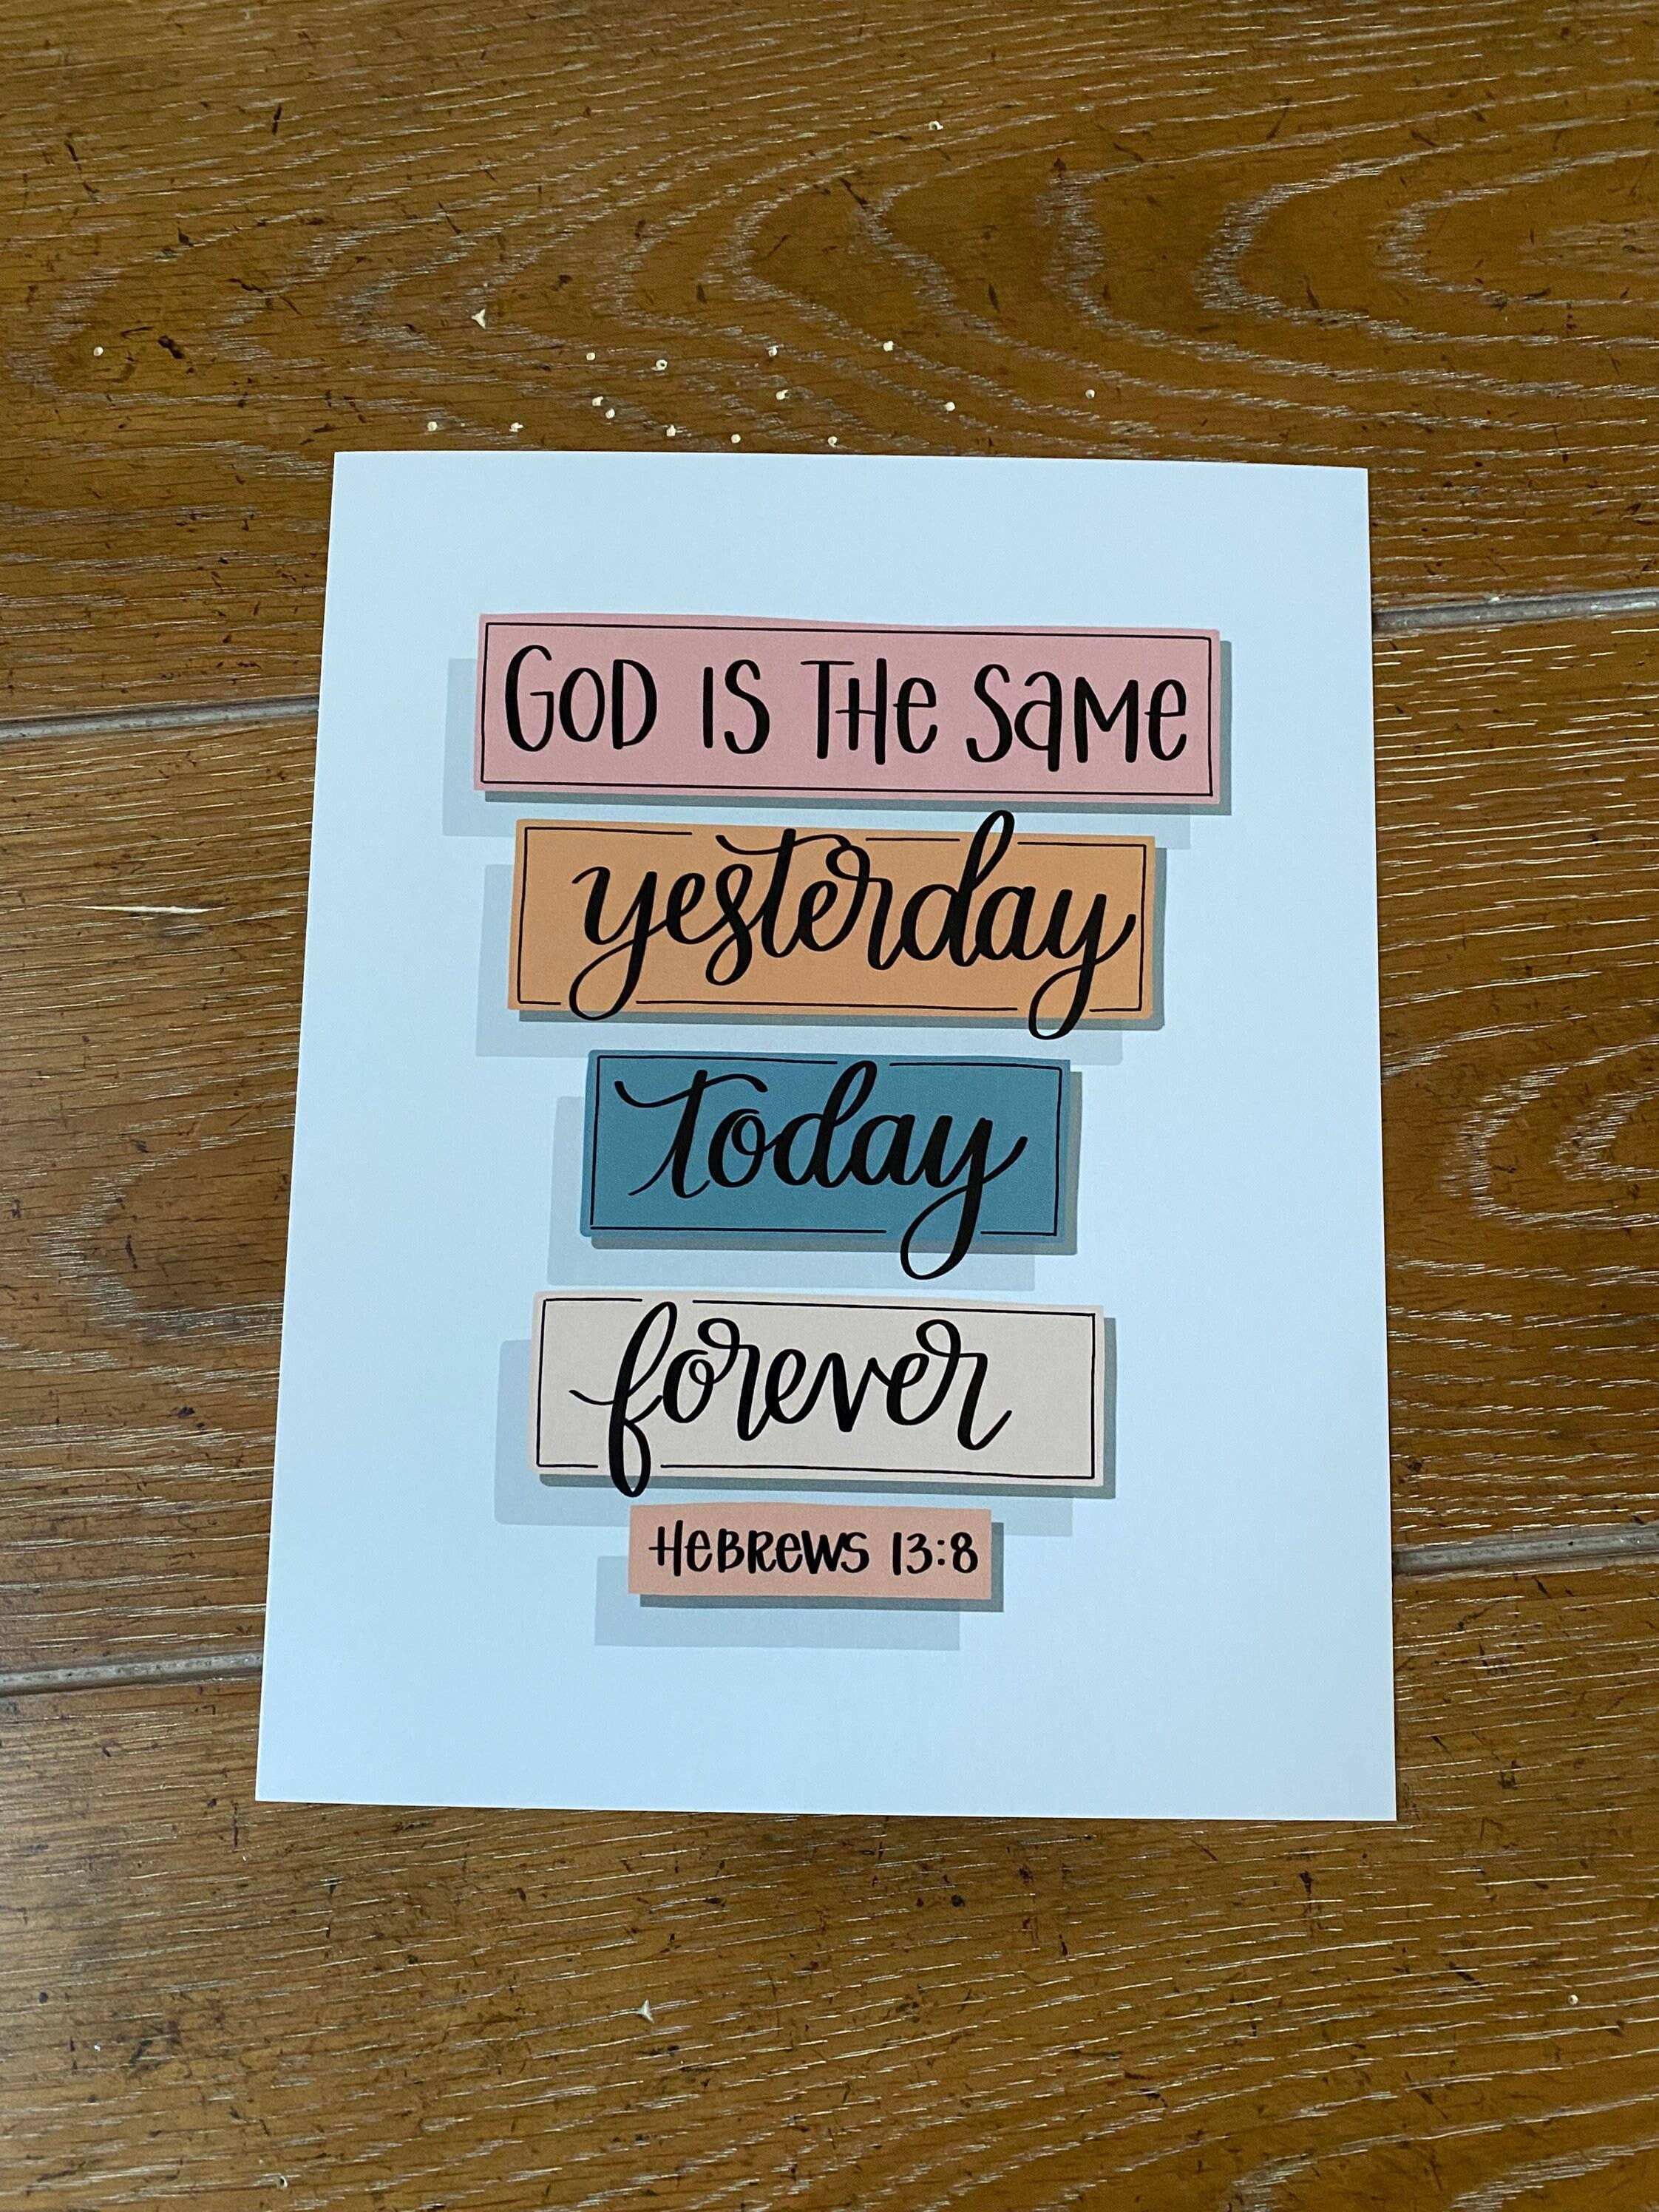 GOD IS THE SAME
yesterday
today
forever
HEBREWS 13:8